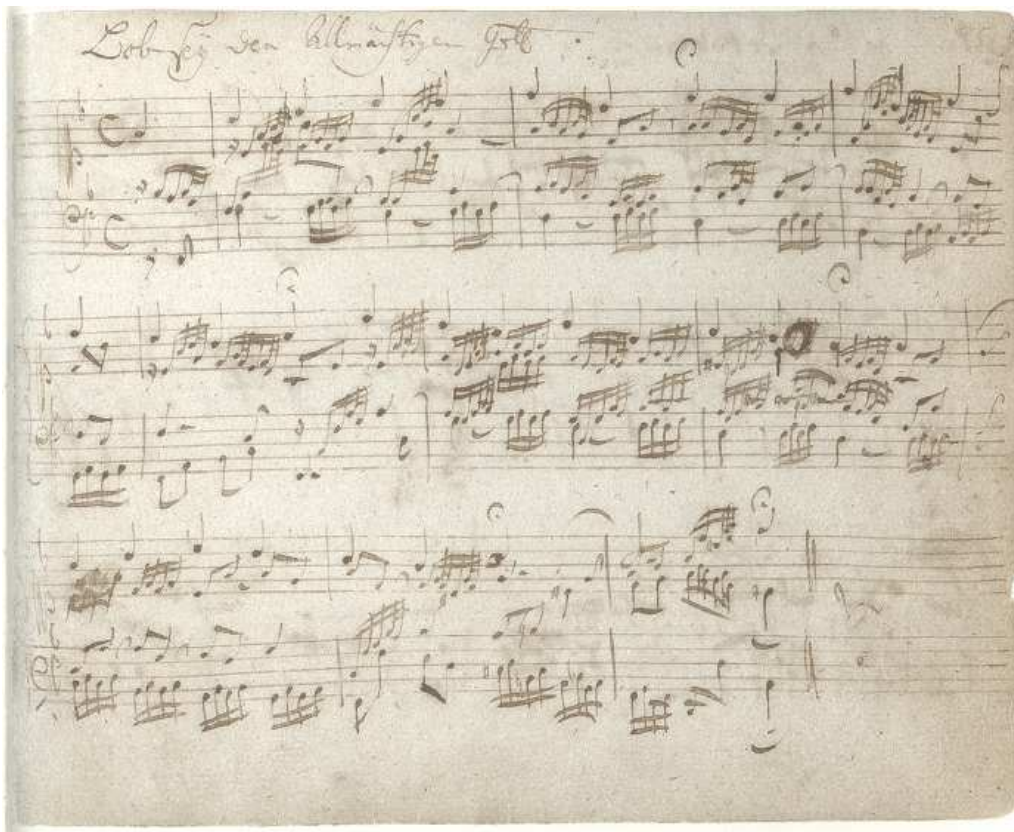 Lob sey dem Allmächtigen Gott